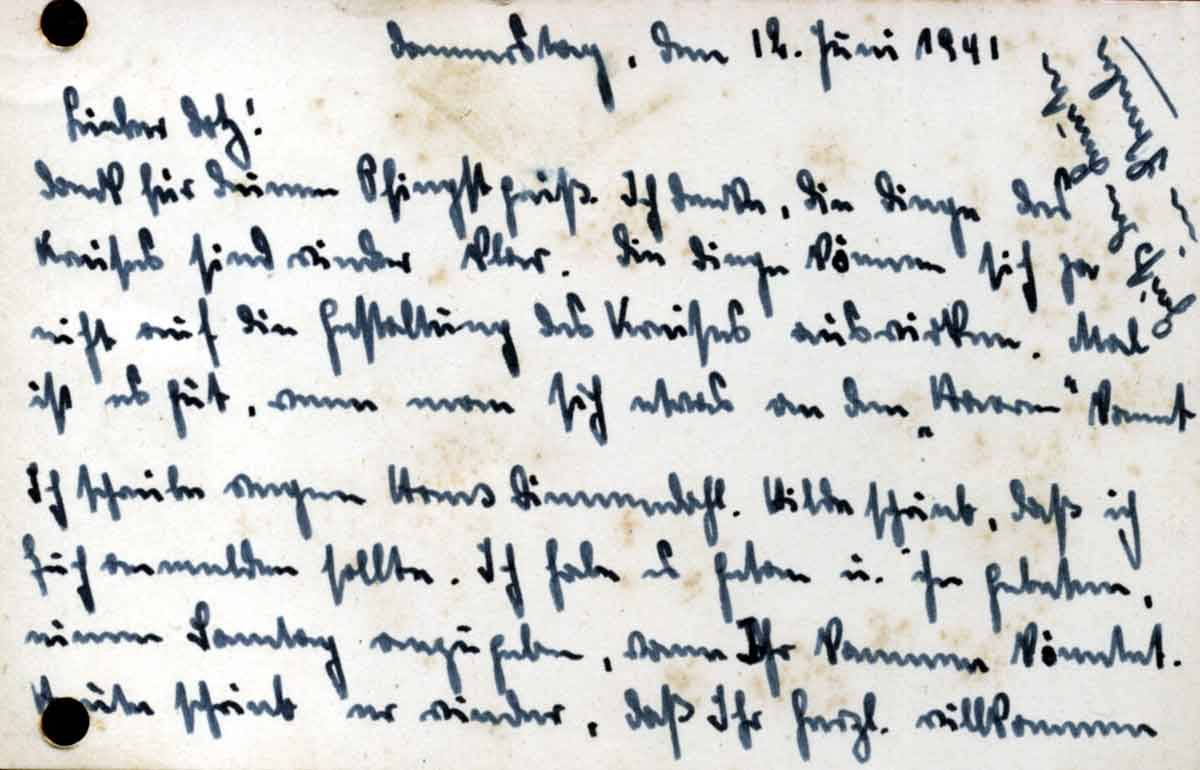 Donnerstag, den 12. Juni 1941
Lieber Dotz!
Dank für deinen Pfingstgruß. Ich denke, die Dinge des
Kreises sind wieder klar. Die Dinge können sich ja
nicht auf die Gestaltung des Kreises auswirken. Mal
ist es gut, wenn man sich etwas an den „Haaren" kennt
Ich schreibe wegen Hans Dimmendahl. Hilde schrieb, daß ich
Euch anmelden sollte. Ich habe es getan u. ihn gebeten,
einen Samtag anzugeben, wann Ihr kommen könntet.
Heute schrieb er wieder, daß Ihr herzl. willkommen